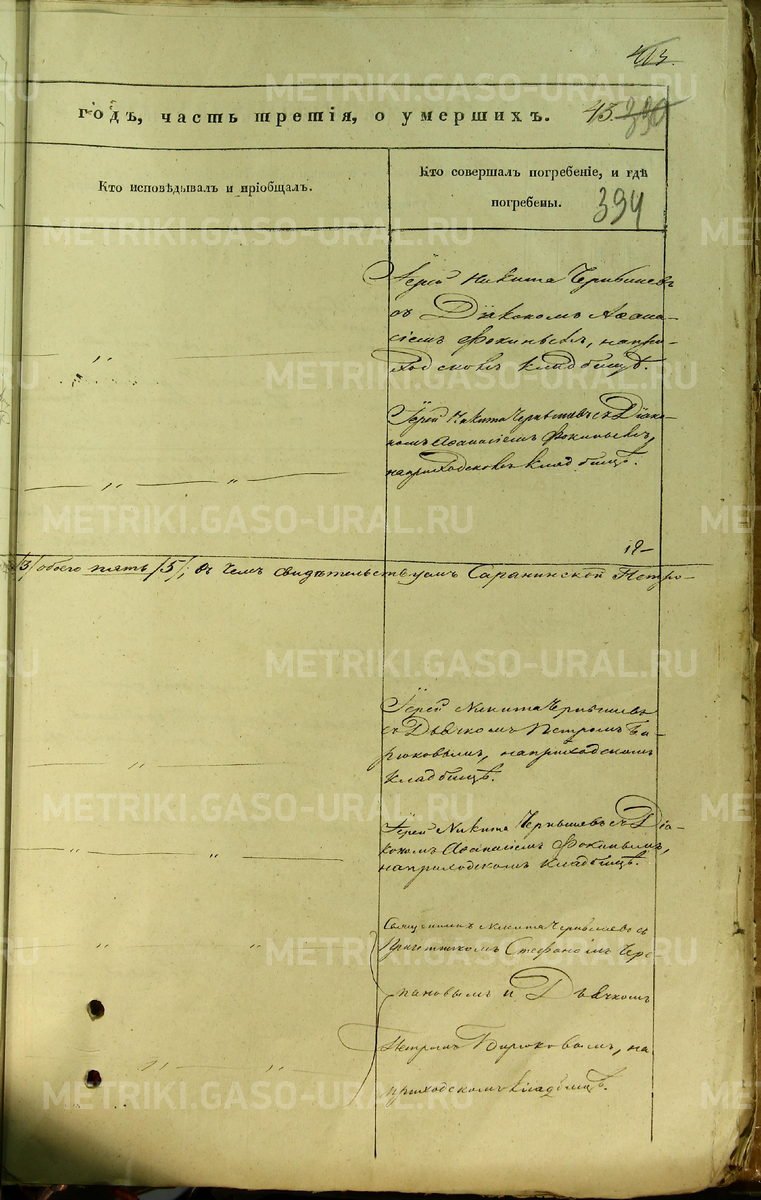 413.
годъ, часть третія, о умершихъ. 43. 390
Кто исповѣдывалъ и пріобщалъ.
Кто совершалъ погребеніе, и гдѣ
погребены.
394
Іерей Никита Чернышевъ
съ Діакономъ Афана-
сіемъ Фокинымъ, на при-
ходскомъ кладбищѣ.
Іерей Никита Чернышевъ съ Діако-
номъ Афанасіемъ Фокинымъ,
на приходскомъ кладбищѣ.
/3/ обоего пять /5/; въ чемъ свидѣтельствуемъ Саранинской Петро-
Іерей Никита Чернышевъ
съ Дьячкомъ Петромъ Би-
рюковымъ, на приходскомъ
кладбищѣ.
Іерей Никита Чернышевъ съ Діа-
кономъ Афанасіемъ Фокинымъ,
на приходскомъ кладбищѣ.
Священникъ Никита Чернышевъ съ
Причетникомъ Стефаномъ Чере-
пановымъ и Дьячкомъ
Петромъ Бирюковымъ, на
приходскомъ кладбищѣ.
METRIKI.GASO-URAL.RU